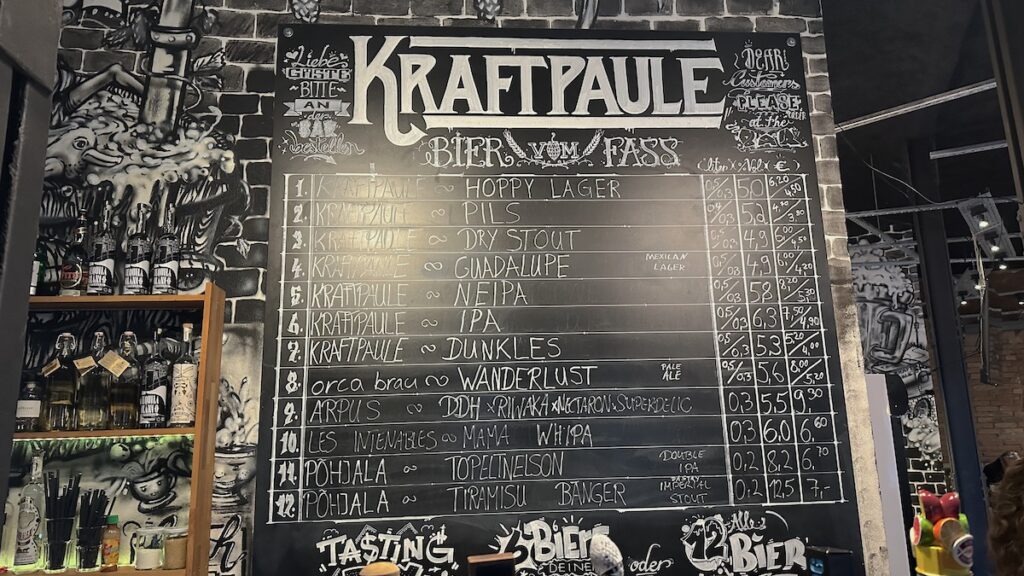 Liebe
Gäste
BITTE
AN
der
BAR
bestellen
KRAFTPAULE
BIER VOM FASS
DEAR
Customers
PLEASE
at the
liter x %vol. x €
1. KRAFTPAULE ~ HOPPY LAGER 0,5/0,3 5,0
2. KRAFTPAULE ~ PILS 5,2
3. KRAFTPAULE ~ DRY STOUT 0,5/0,3 4,9
4. KRAFTPAULE ~ GUADALUPE MEXICAN LAGER 0,5/0,3 4,9 6,00/4,20
5. KRAFTPAULE ~ NEIPA 0,5/0,3 5,8
6. KRAFTPAULE ~ IPA 0,5/0,3 6,3 7,50/4,90
7. KRAFTPAULE ~ DUNKLES 0,5/0,3 5,3
8. orca brau ~ WANDERLUST PALE ALE 0,5/0,3 5,6 8,00/5,20
9. ARPUS ~ DDH x RIWAKA x NECTARON x SUPERDELIC 0,3 5,5 9,30
10. LES INTENABLES ~ MAMA WHIPA 0,3 6,0 6,60
11. PÕHJALA ~ TOPELTNELSON DOUBLE IPA 0,2 8,2 6,70
12. PÕHJALA ~ TIRAMISU BANGER IMPERIAL STOUT 0,2 12,5 7,-
TASTING
6 BIER
DEINER
oder
12 Alle
BIER